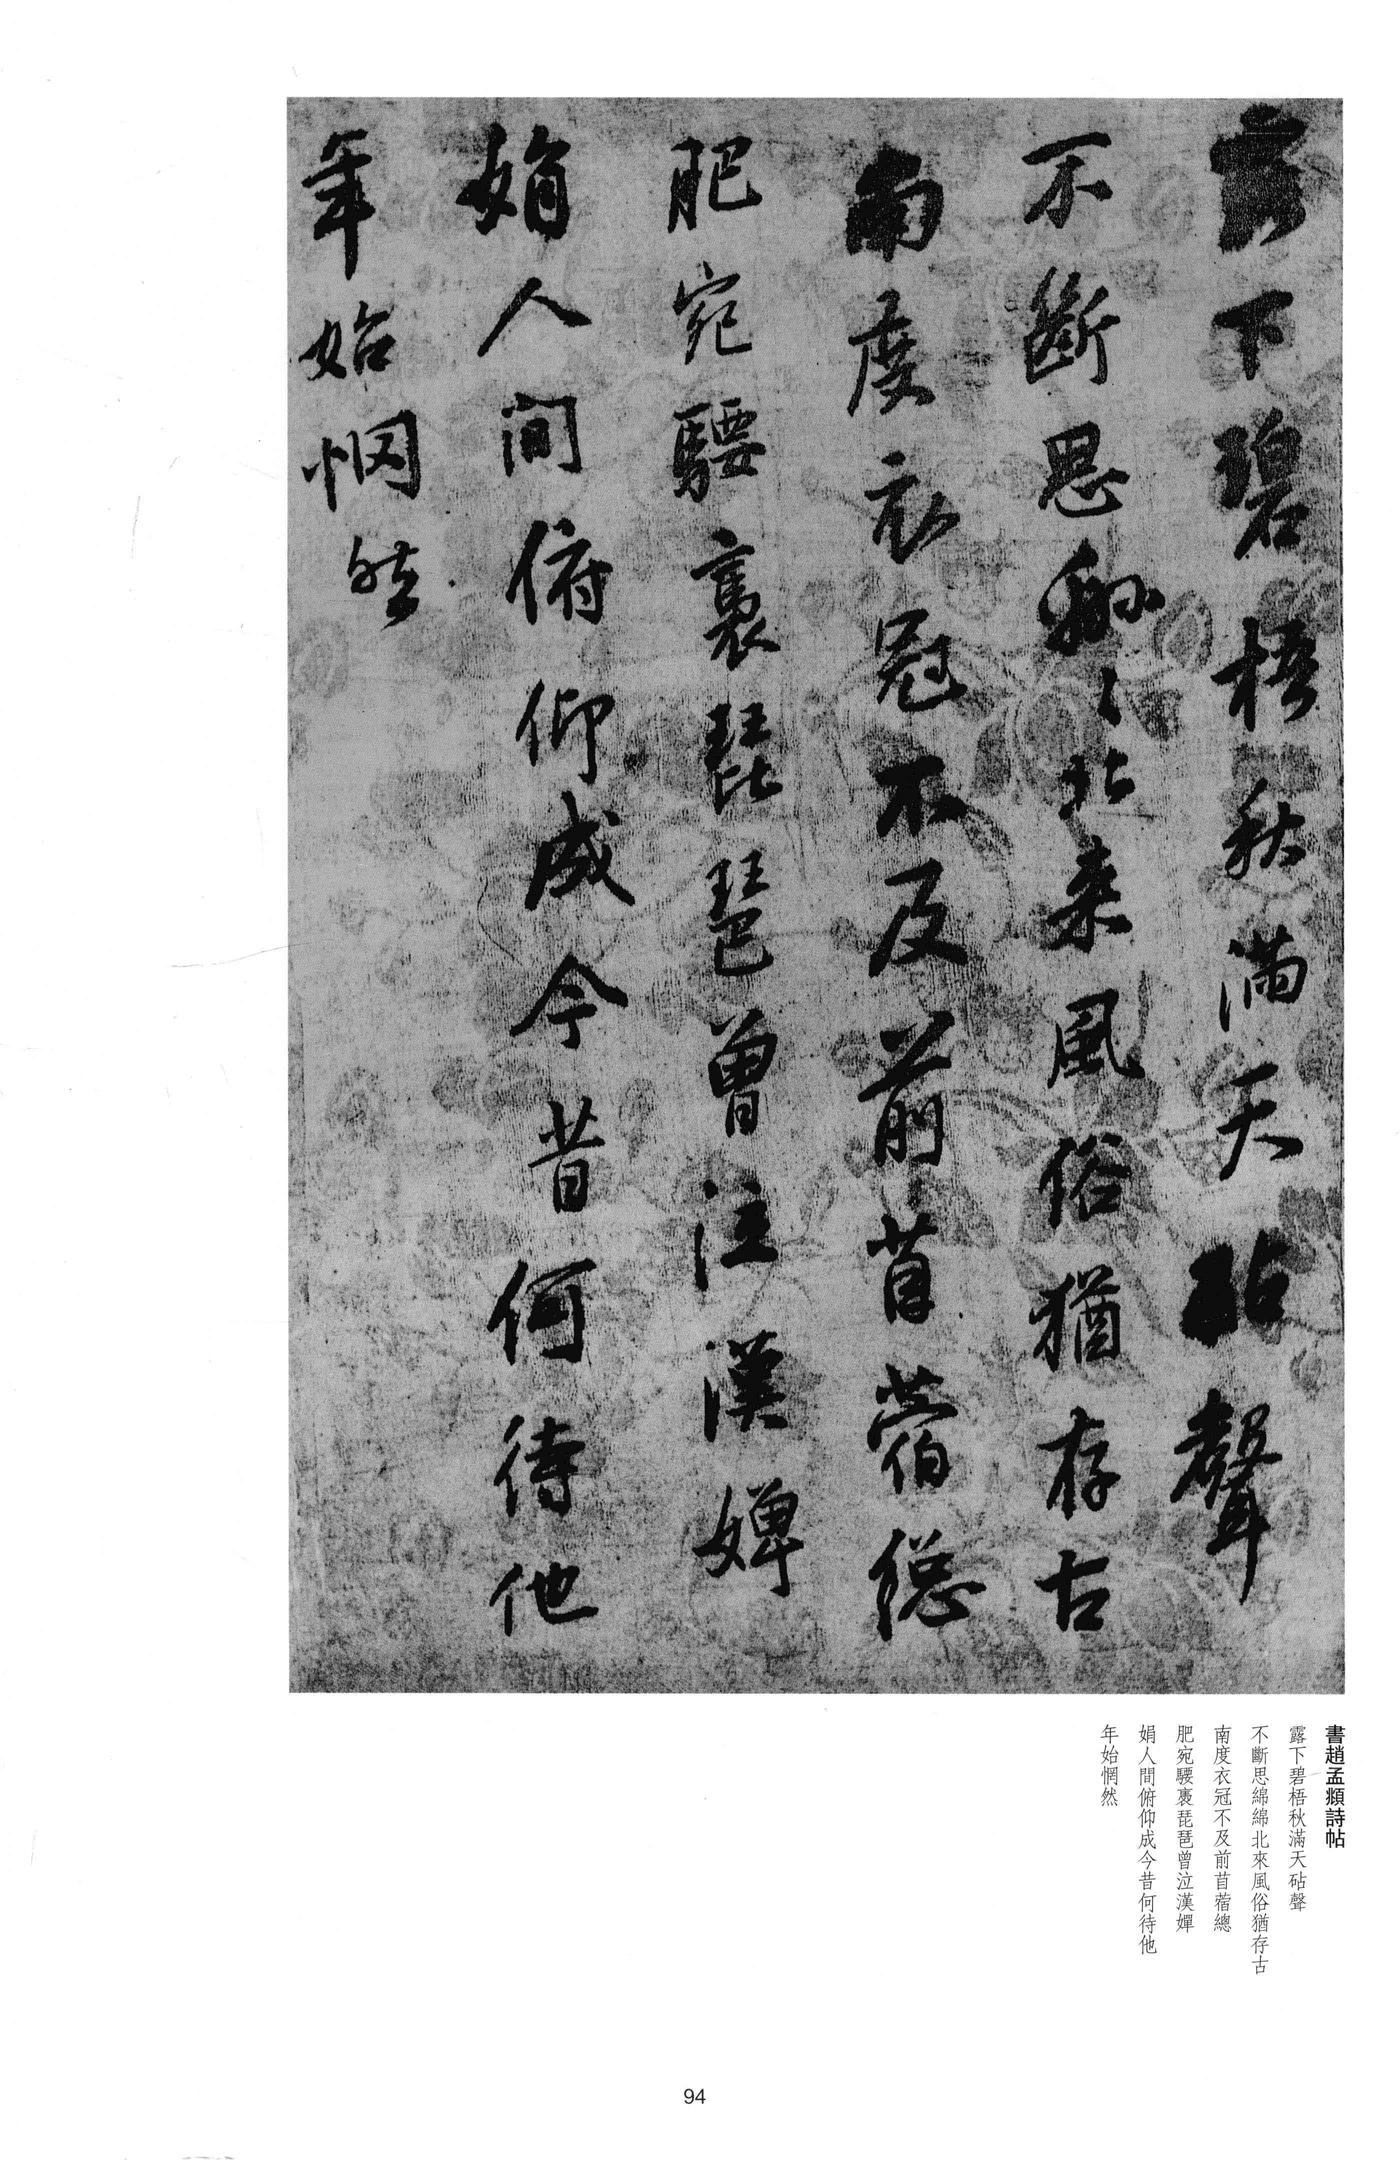 露下碧梧秋滿天砧聲
不斷思綿〻北來風俗猶存古
南度衣冠不及前苜蓿總
肥宛騕褭琵琶曾泣漢嬋
娟人間俯仰成今昔何待他
年始惘然
書趙孟頫詩帖
露下碧梧秋滿天砧聲
不斷思綿綿北來風俗猶存古
南度衣冠不及前苜蓿總
肥宛騕褭琵琶曾泣漢嬋
娟人間俯仰成今昔何待他
年始惘然
94